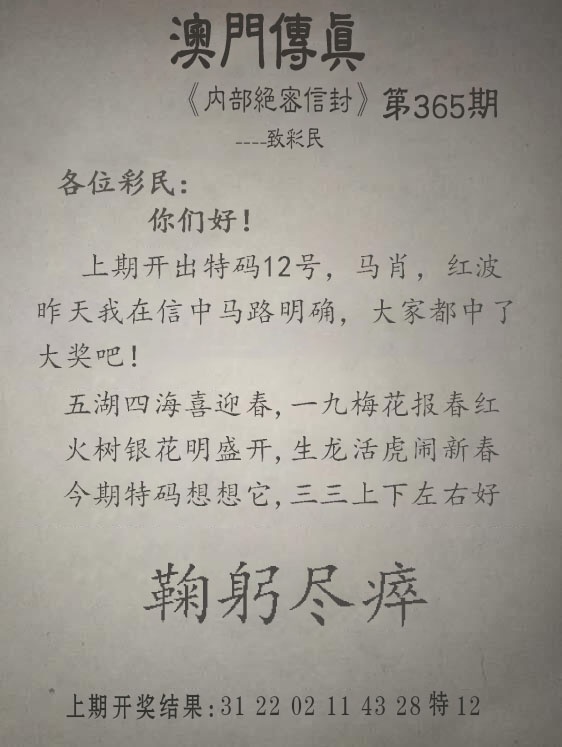 澳門傳真
《内部絕密信封》第365期
----致彩民
各位彩民：
你们好！
上期开出特码12号，马肖，红波
昨天我在信中马路明确，大家都中了
大奖吧！
五湖四海喜迎春,一九梅花报春红
火树银花明盛开,生龙活虎闹新春
今期特码想想它,三三上下左右好
鞠躬尽瘁
上期开奖结果:31 22 02 11 43 28 特 12